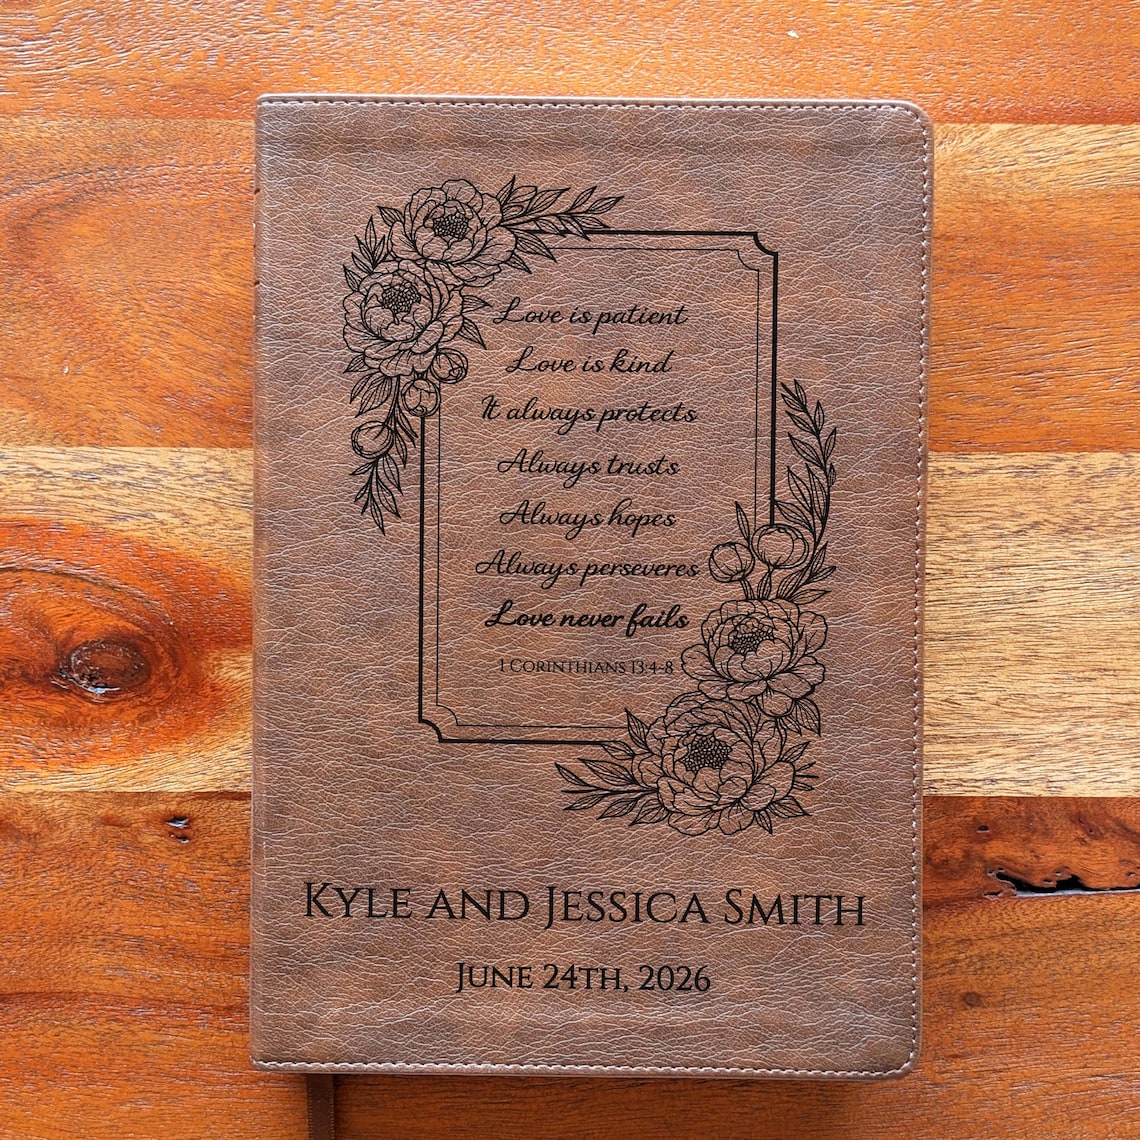 Love is patient
Love is kind
It always protects
Always trusts
Always hopes
Always perseveres
Love never fails
1 Corinthians 13:4-8
Kyle and Jessica Smith
June 24th, 2026